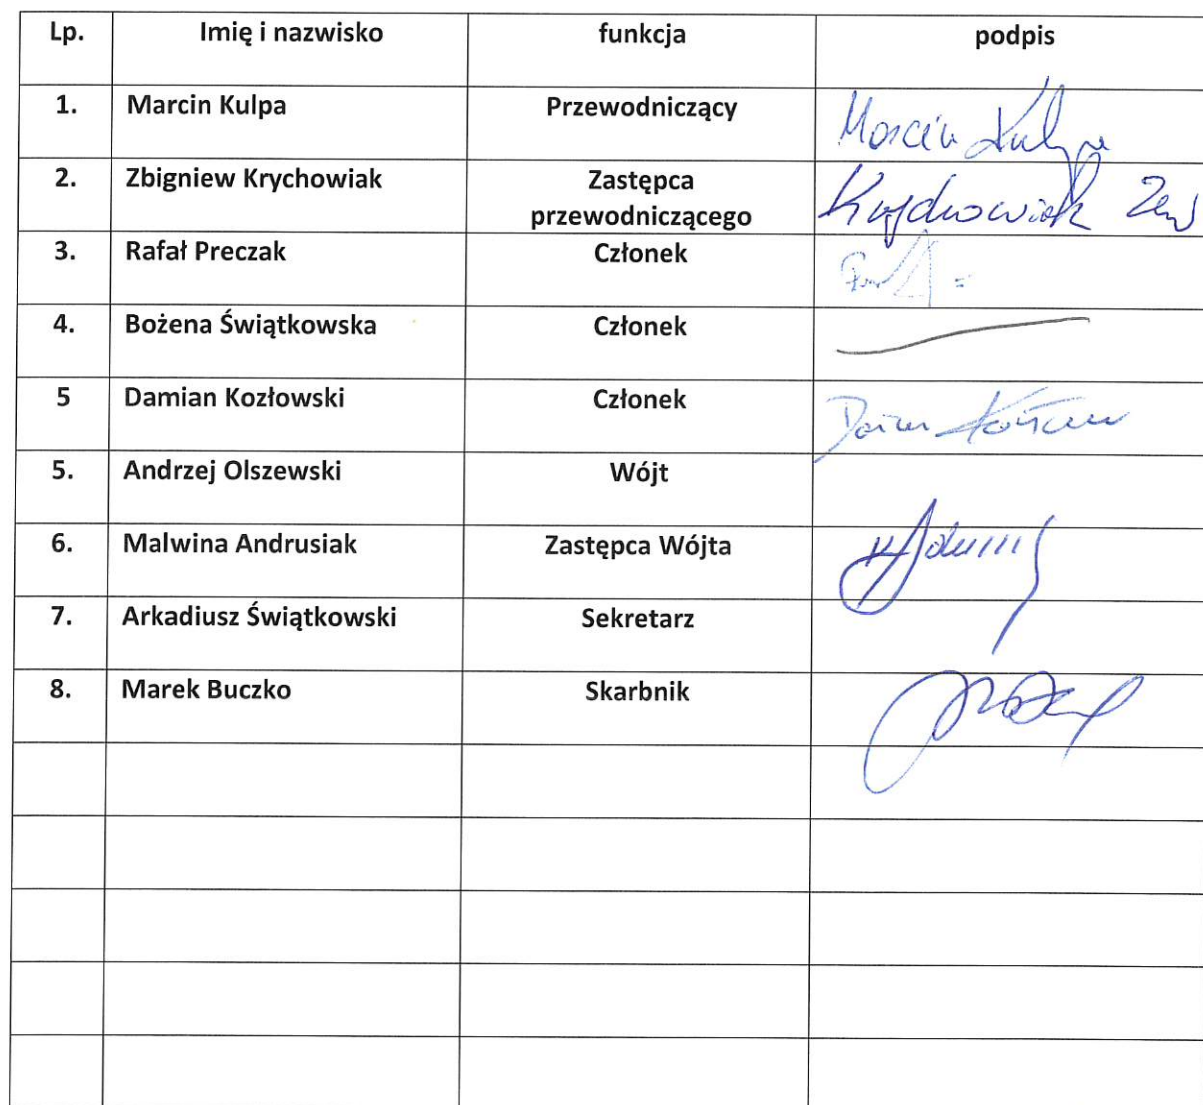 Lp. Imię i nazwisko funkcja podpis
1. Marcin Kulpa Przewodniczący Marcin Kulpa
2. Zbigniew Krychowiak Zastępca
przewodniczącego Krychowiak
3. Rafał Preczak Członek
4. Bożena Świątkowska Członek
5 Damian Kozłowski Członek
5. Andrzej Olszewski Wójt
6. Malwina Andrusiak Zastępca Wójta
7. Arkadiusz Świątkowski Sekretarz
8. Marek Buczko Skarbnik